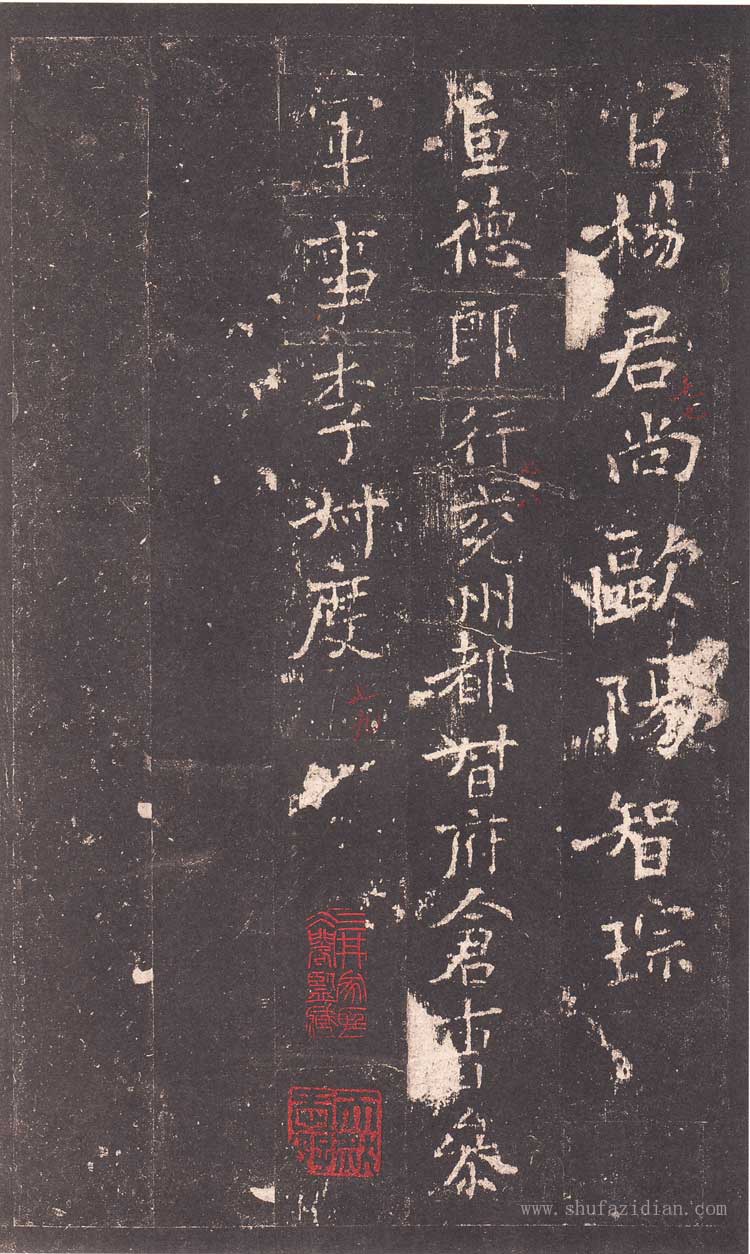 官楊君尚歐陽智琮
宣德郎行兖州都督府倉曹參
軍事李叔度
www.shufazidian.com